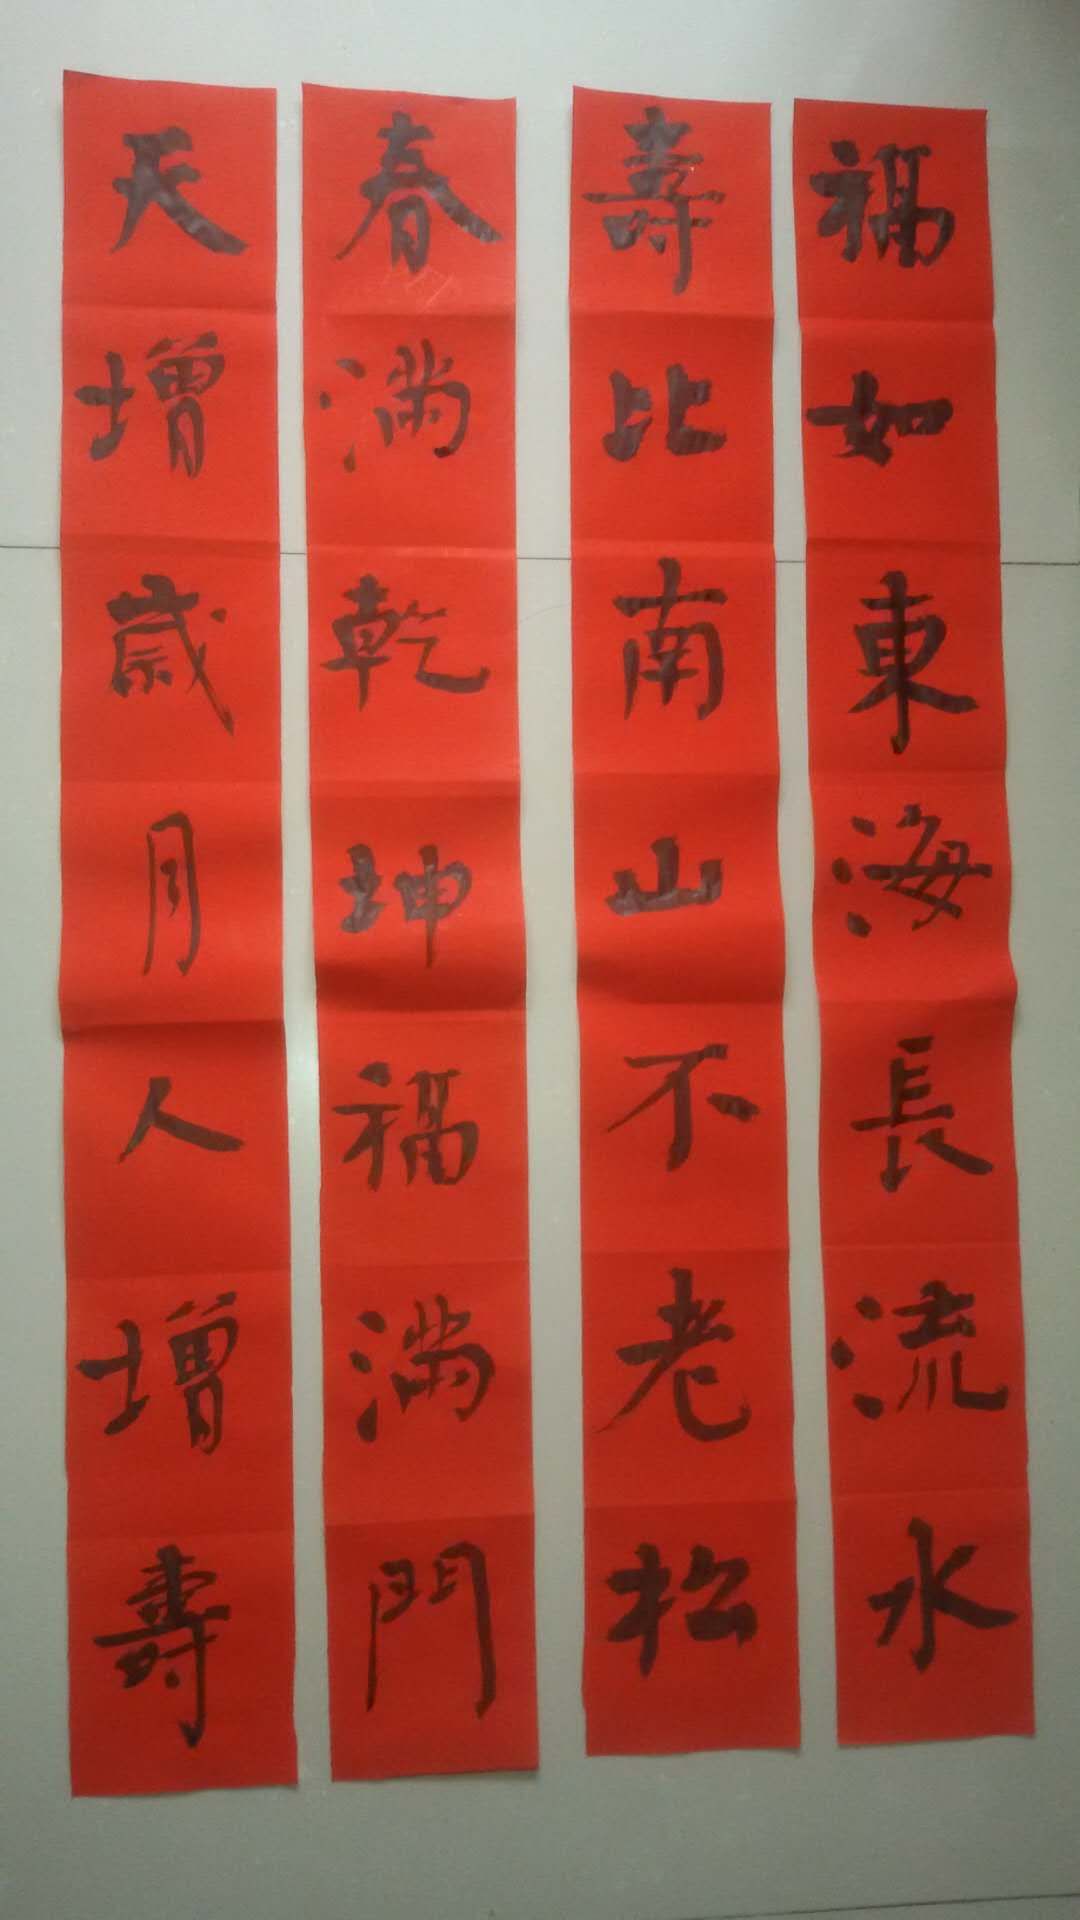 福如東海長流水
壽比南山不老松
春满乾坤福满門
天增歲月人增壽